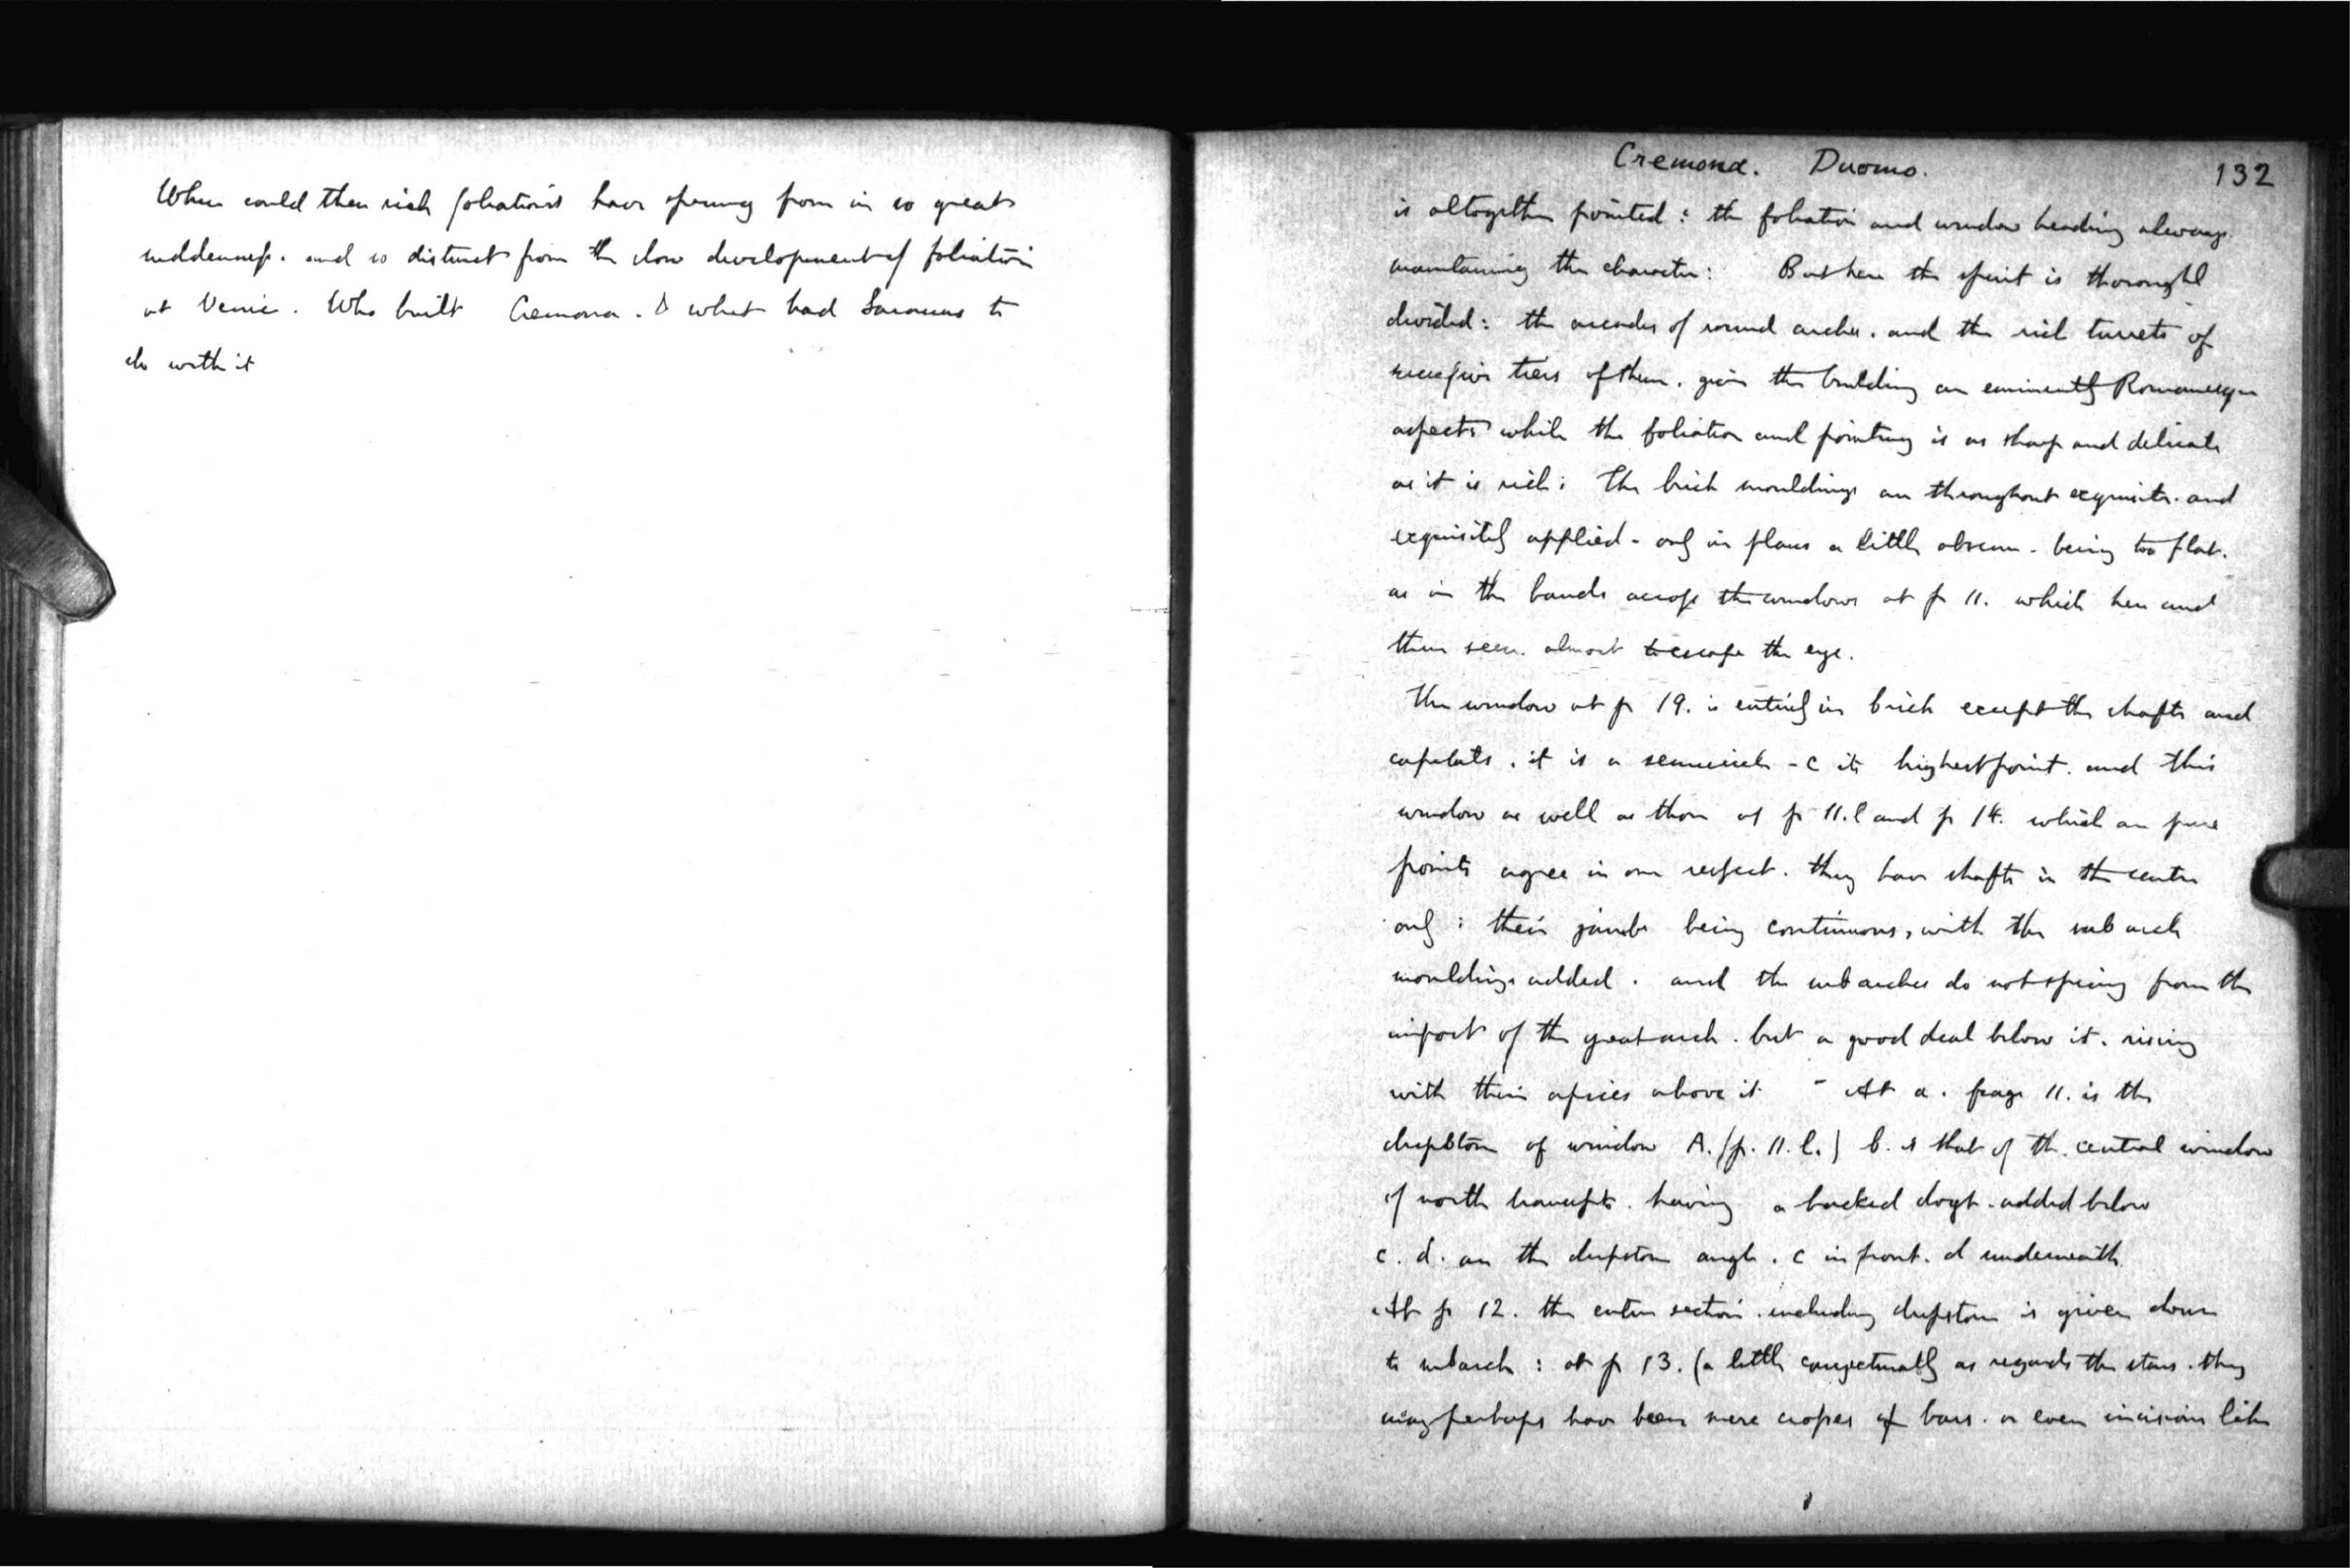 Where could these rich foliations have sprung from in so great
suddenness. and so distinct from the slow development of foliation
at Venice. Who built Cremona. & what had Saracens to
do with it
Cremona. Duomo. 132
is altogether pointed: the foliation and window heading always
maintaining the character: But here the spirit is thoroughl
divided: the arcades of round arches. and the rich turrets of
successive tiers of them. give the building an eminently Romanesque
aspect while the foliation and pointing is as sharp and delicate
as it is rich: The brick mouldings are throughout exquisite. and
exquisitely applied - only in places a little obscure - being too flat.
as in the bands across the windows at p 11. which here and
there seem almost to escape the eye.
The window at p 19. is entirely in brick except the shafts and
capitals. it is a semicircle - c its highest point. and this
window as well as those at p 11.l and p 14. which are pure
points agree in one respect. they have shafts in the centre
only: their jambs being continuous, with the subarch
mouldings added. and the subarches do not spring from the
impost of the great arch. but a good deal below it. rising
with their apices above it - At a. page 11. is the
dripstone of window A. (p. 11. l.) b. is that of the central window
of north transept. having a backed dogt. added below
c. d. are the dripstone angle. c in front. d underneath
At p 12. the entire section. including dripstone is given down
to subarch: at p 13. (a little conjecturally as regards the stars. they
may perhaps have been mere crosses of bars. or even incisions like